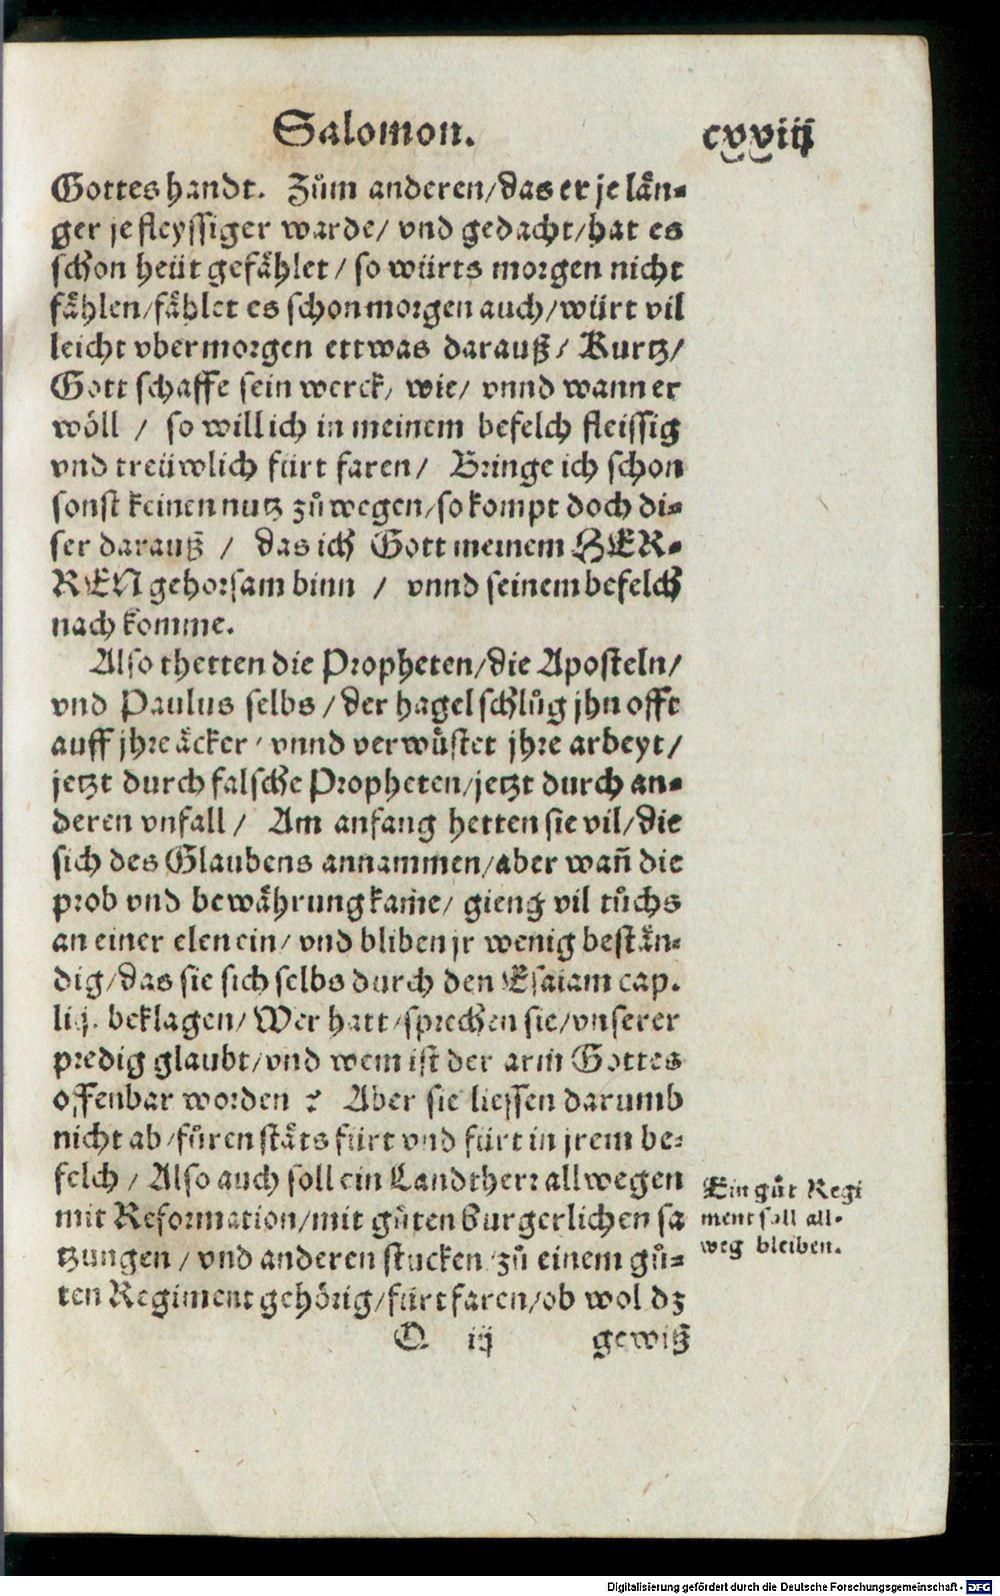 Salomon. cxxiiij
Gottes handt. Zům anderen/das er je län⸗
ger je fleyssiger warde/ vnd gedacht/hat es
schon heüt gefählet/ so würts morgen nicht
fählen/fählet es schon morgen auch/würt vil
leicht vbermorgen ettwas darauß/ Kurtz/
Gott schaffe sein werck/ wie/ vnnd wann er
wöll / so will ich in meinem befelch fleissig
vnd treüwlich fürt faren/ Bringe ich schon
sonst keinen nutz zů wegen/so kompt doch di⸗
ser darauß / das ich Gott meinem HER⸗
REN gehorsam binn / vnnd seinem befelch
nach komme.
Also thetten die Propheten/die Aposteln/
vnd Paulus selbs/der hagel schlůg jhn offt
auff jhre äcker/ vnnd verwůstet jhre arbeyt/
jetzt durch falsche Propheten/jetzt durch an⸗
deren vnfall/ Am anfang hetten sie vil/die
sich des Glaubens annammen/aber wañ die
prob vnd bewährung kam̃e/ gieng vil tůchs
an einer elen ein/ vnd bliben jr wenig bestän⸗
dig/das sie sich selbs durch den Esaiam cap.
liij. beklagen/ Wer hatt/sprechen sie/vnserer
predig glaubt/vnd wem ist der arm Gottes
offenbar worden ? Aber sie liessen darumb
nicht ab/fůren stäts fürt vnd fürt in jrem be⸗
felch / Also auch soll ein Landtherr allwegen
mit Reformation/mit gůten burgerlichen sa
tzungen/ vnd anderen stucken zů einem gů⸗
ten Regiment gehörig/fürt faren/ob wol dz
Ein gůt Regi
ment soll all⸗
weg bleiben.
Q iij gewiß
Digitalisierung gefördert durch die Deutsche Forschungsgemeinschaft - DFG